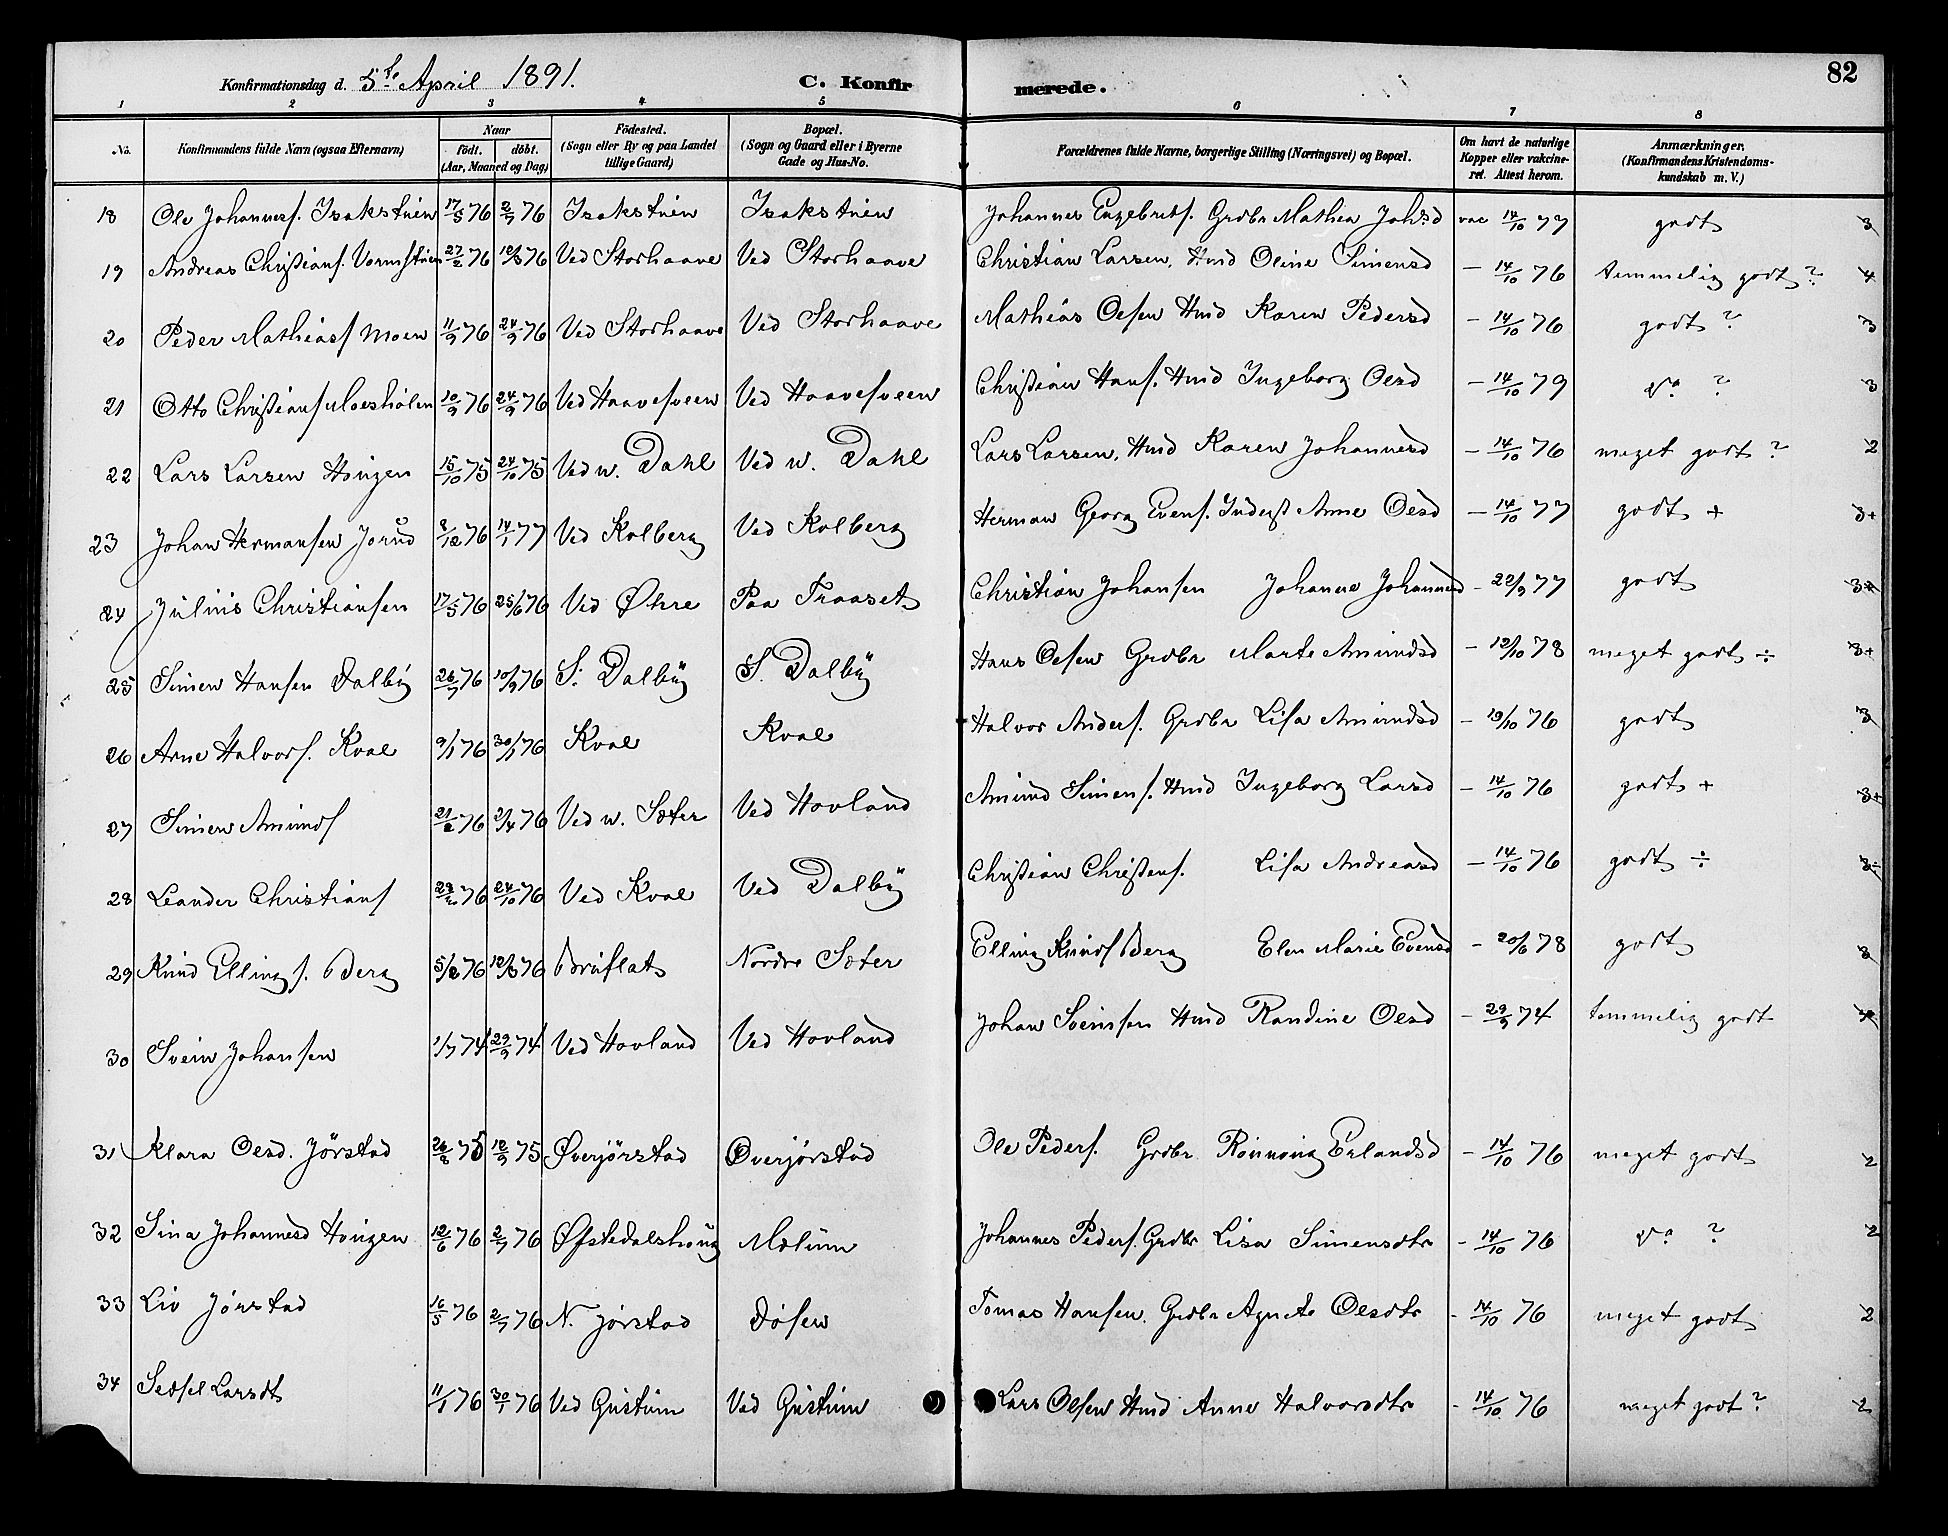 82
Konfirmationsdag d. 5te April 1891. C. Konfirmerede.
1 2 3 4 5 6 7 8
No. Konfirmandens fulde Navn (ogsaa Efternavn) Naar födt. döbt. (Aar, Maaned og Dag) Födested. (Sogn eller By og paa Landet tillige Gaard) Bopæl. (Sogn og Gaard eller i Byerne Gade og Hus-No. Forældrenes fulde Navne, borgerlige Stilling (Næringsvei) og Bopæl. Om havt de naturlige Kopper eller vakcineret. Attest herom. Anmærkninger. (Konfirmandens Kristendomskundskab m. V.)
18 Ole Johannesf. Isakstuen 17/5 76 2/7 76 Isakstuen Isakstuen Johannes Engebretf. Grdbr Mathea Johsd vac 14/10 77 godt 3
19 Andreas Christianf. 27/2 76 12/3 76 Ved Storhaave Ved Storhaave Christian Larsen, Hmd Oline Simensd - 14/10 76 temmelig godt ? 4
20 Peder Mathiasf Moen 11/9 76 24/9 76 Ved Storhaave Ved Storhaave Mathias Olsen Hmd Karen Pedersd - 14/10 76 godt ? 3
21 Otto Christianf 10/9 76 24/9 76 Ved Haavesveen Ved Haavesveen Christian Hansf. Hmd Ingeborg Olsd - 14/10 79 do ? 3
22 Lars Larsen Hougen 15/10 75 24/10 75 Ved w. Dahl Ved w. Dahl Lars Larsen, Hmd Karen Johannesd - 14/10 76 meget godt ? 2
23 Johan Hermansen Jorud 8/12 76 14/1 77 Ved Kolberg Ved Kolberg Herman Georg Evenf. Inderst Anne Olsd - 14/10 77 godt + 3+
24 Julius Christiansen 17/5 76 25/6 76 Ved Øhre Paa Traaset Christian Johansen Johanne Johannesd - 22/9 77 godt
25 Simen Hansen Dalby 26/7 76 10/9 76 S. Dalby S. Dalby Hans Olsen Grdbr Marte Amundsd - 12/10 78 meget godt ÷ 3+
26 Arne Halvorf. Kval 9/1 76 30/1 76 Kval Kval Halvor Andersf. Grdbr Lisa Amundsd - 19/10 76 godt 3
27 Simen Amundf 21/2 76 2/4 76 Ved w. Sæter Ved Hovland Amund Simenf. Hmd Ingeborg Larsd - 14/10 76 godt + 3+
28 Leander Christianf 76 24/10 76 Ved Kval Ved Dalby Christian Christenf. Lisa Andreasd - 14/10 76 godt ÷ 3÷
29 Knud Ellingf. Berg 5/2 76 12/3 76 Bruflat Nordre Sæter Elling Knudf Berg Elen Marie Evensd - 20/6 78 godt 3
30 Svein Johansen 1/7 74 29/9 74 Ved Hovland Ved Hovland Johan Sveinsen Hmd Randine Olsd - 29/9 74 temmelig godt 4
31 Klara Olsd. Jørstad 26/8 75 12/9 75 Øverjørstad Øverjørstad Ole Pedersf. Grdbr Rønnoug Erlandsd - 14/10 76 meget godt 2
32 Sina Johannesd Hougen 12/6 76 2/7 76 Øfstedalshoug Mælum Johannes Pedersf. Grdbr Lisa Simensdtr - 14/10 76 do ? 2
33 Liv Jørstad 16/5 76 2/7 76 N. Jørstad Døsen Tomas Hansen. Grdbr Agnete Olesdtr - 14/10 76 meget godt 2
34 Sedsel Larsdt 11/1 76 30/1 76 Ved Gustum Ved Gustum Lars Olsen Hmd Anne Halvorsdtr - 14/10 76 meget godt ? 2